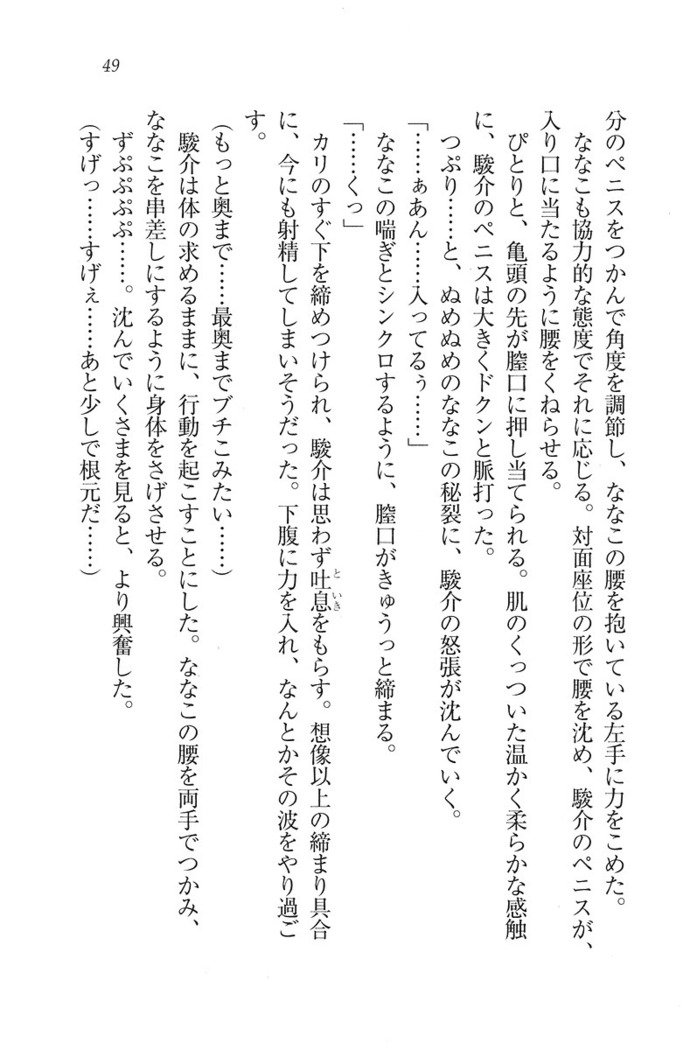 49
分のペニスをつかんで角度を調節し、ななこの腰を抱いている左手に力をこめた。
ななこも協力的な態度でそれに応じる。対面座位の形で腰を沈め、駿介のペニスが、
入り口に当たるように腰をくねらせる。
ぴとりと、亀頭の先が膣口に押し当てられる。肌のくっついた温かく柔らかな感触
に、駿介のペニスは大きくドクンと脈打った。
つぷり……と、ぬめぬめのななこの秘裂に、駿介の怒張が沈んでいく。
「……ぁあん……入ってるぅ……」
ななこの喘ぎとシンクロするように、膣口がきゅうっと締まる。
「……くっ」
カリのすぐ下を締めつけられ、駿介は思わず吐息をもらす。想像以上の締まり具合
といき
に、今にも射精してしまいそうだった。下腹に力を入れ、なんとかその波をやり過ご
す。
(もっと奥まで……最奥までブチこみたい……)
駿介は体の求めるままに、行動を起こすことにした。ななこの腰を両手でつかみ、
ななこを串差しにするように身体をさげさせる。
ずぷぷぷぷ……。沈んでいくさまを見ると、より興奮した。
(すげっ……すげぇ……あと少しで根元だ……)